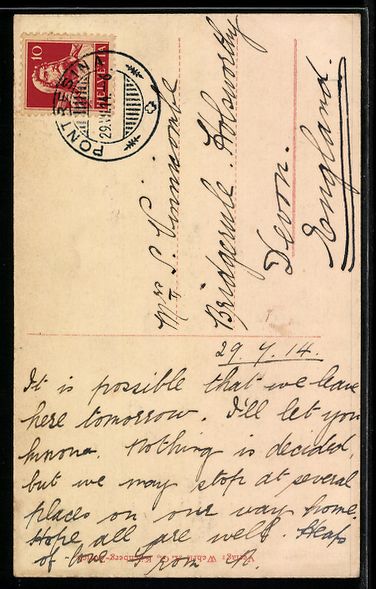 10
HELVETIA
PONTRESINA
29.VII.14
Mrs S. Vinnicombe
Bridgerule Holsworthy
Devon.
England.
29.7.14.
It is possible that we leave
here tomorrow. I'll let you
know. Nothing is decided,
but we may stop at several
places on our way home.
Hope all are well. Heaps
of love from
Verlag: Wehrli A.-G. Kilchberg